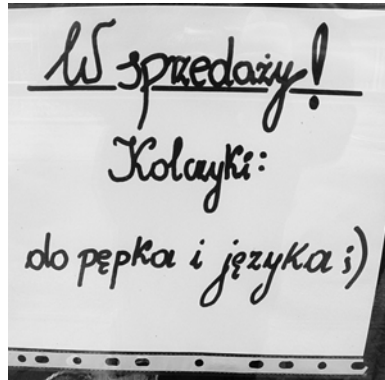 W sprzedaży!
Kolczyki:
do pępka i języka ;)